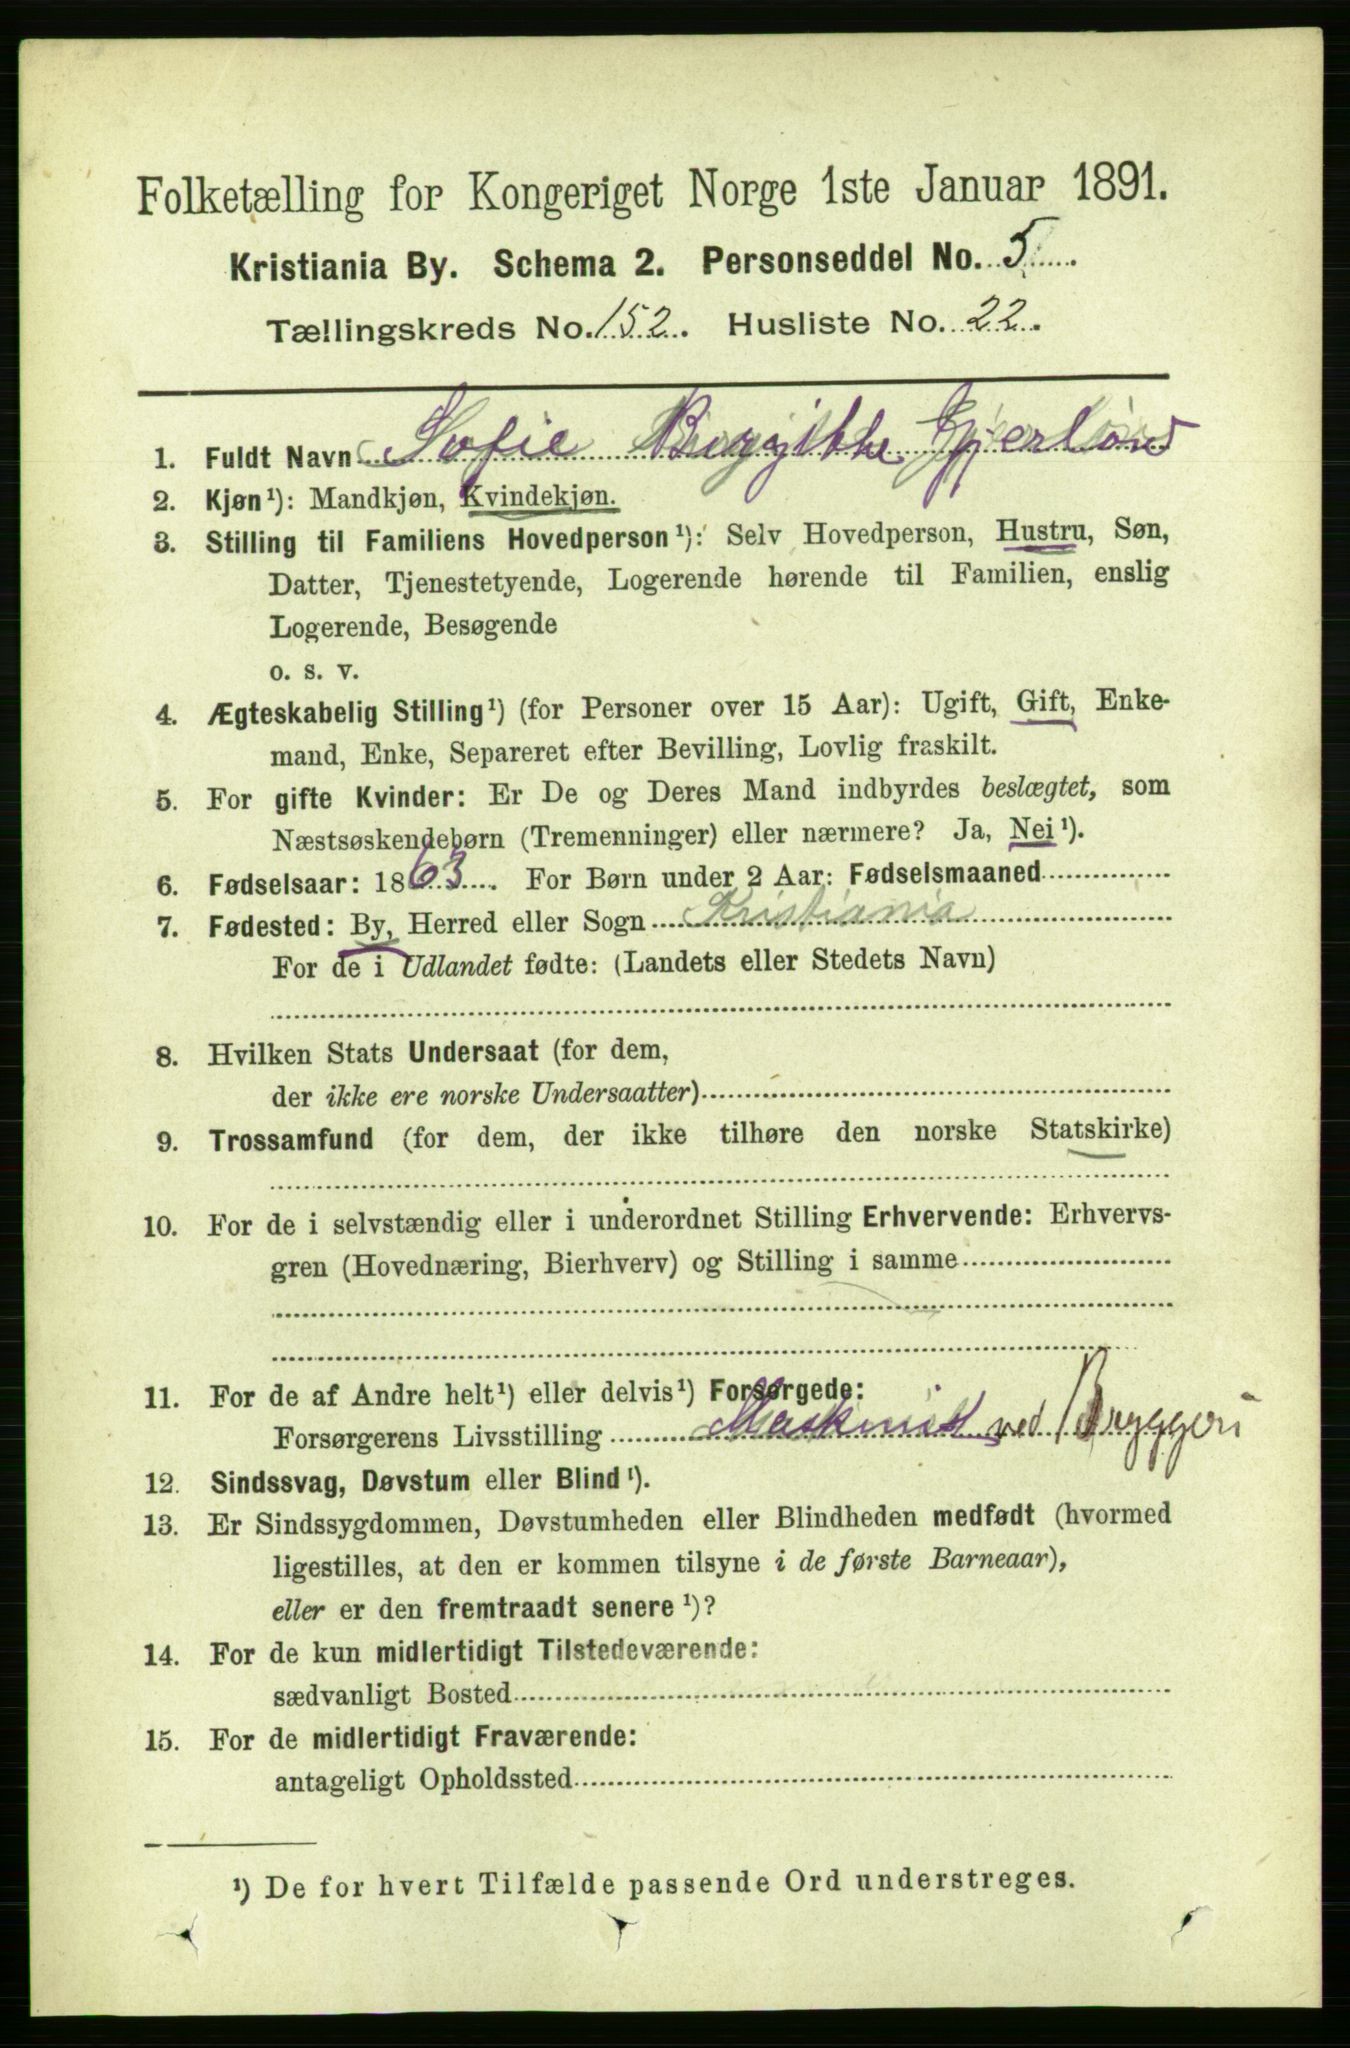 Folketælling for Kongeriget Norge 1ste Januar 1891.
Kristiania By. Schema 2. Personseddel No. 5.
Tællingskreds No. 152. Husliste No. 22.
1. Fuldt Navn Sofie Birgitthe Gjerløw
2. Kjøn¹): Mandkjøn, Kvindekjøn.
3. Stilling til Familiens Hovedperson¹): Selv Hovedperson, Hustru, Søn,
Datter, Tjenestetyende, Logerende hørende til Familien, enslig
Logerende, Besøgende
o. s. v.
4. Ægteskabelig Stilling¹) (for Personer over 15 Aar): Ugift, Gift, Enke-
mand, Enke, Separeret efter Bevilling, Lovlig fraskilt.
5. For gifte Kvinder: Er De og Deres Mand indbyrdes beslægtet, som
Næstsøskendebørn (Tremenninger) eller nærmere? Ja, Nei¹).
6. Fødselsaar: 1863. For Børn under 2 Aar: Fødselsmaaned
7. Fødested: By, Herred eller Sogn Kristiania
For de i Udlandet fødte: (Landets eller Stedets Navn)
8. Hvilken Stats Undersaat (for dem,
der ikke ere norske Undersaatter)
9. Trossamfund (for dem, der ikke tilhøre den norske Statskirke)
10. For de i selvstændig eller i underordnet Stilling Erhvervende: Erhvervs-
gren (Hovednæring, Bierhverv) og Stilling i samme
11. For de af Andre helt¹) eller delvis¹) Forsørgede:
Forsørgerens Livsstilling Maskinist ved Bryggeri
12. Sindssvag, Døvstum eller Blind¹).
13. Er Sindssygdommen, Døvstumheden eller Blindheden medfødt (hvormed
ligestilles, at den er kommen tilsyne i de første Barneaar),
eller er den fremtraadt senere¹)?
14. For de kun midlertidigt Tilstedeværende:
sædvanligt Bosted
15. For de midlertidigt Fraværende:
antageligt Opholdssted
¹) De for hvert Tilfælde passende Ord understreges.